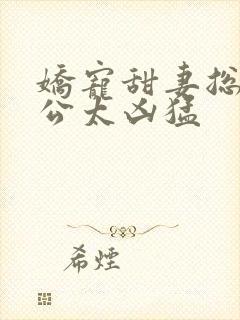 娇寵甜妻总
公太凶猛
希煙